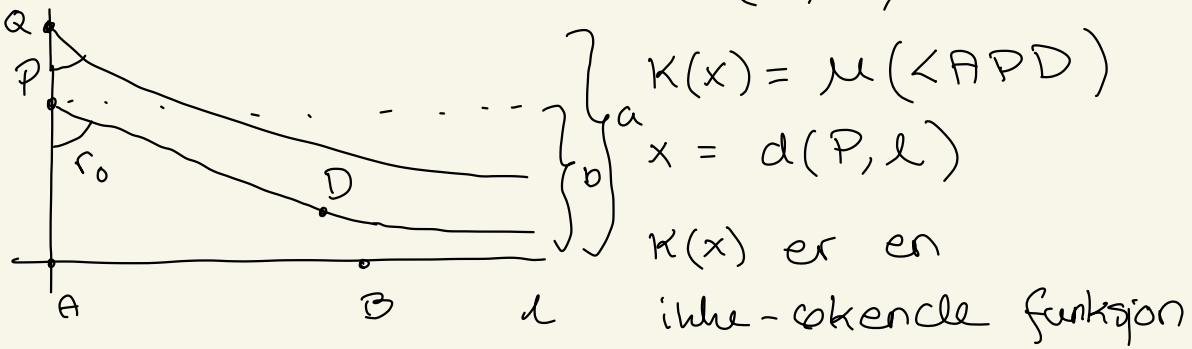 Q
P
r₀
D
A
B
l
b
a
K(x) = μ(<APD)
x = d(P, l)
K(x) er en
ikke-økende funksjon